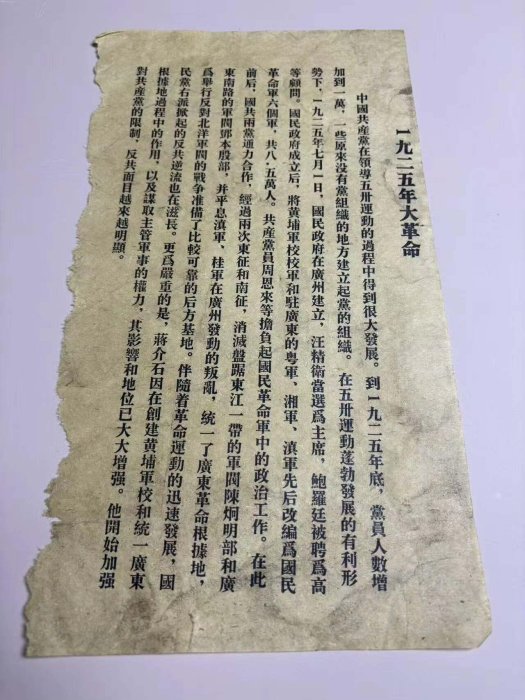 一九二五年大革命
中國共産黨在領導五卅運動的過程中得到很大發展。到一九二五年底，黨員人數增
加到一萬，一些原來没有黨組織的地方建立起黨的組織。在五卅運動蓬勃發展的有利形
勢下，一九二五年七月一日，國民政府在廣州建立，汪精衛當選爲主席，鮑羅廷被聘爲高
等顧問。國民政府成立后，將黄埔軍校校軍和駐廣東的粤軍、湘軍、滇軍先后改編爲國民
革命軍六個軍，共八·五萬人。共産黨員周恩來等擔負起國民革命軍中的政治工作。在此
前后，國共兩黨通力合作，經過兩次東征和南征，消滅盤踞東江一帶的軍閥陳炯明部和廣
東南路的軍閥鄧本殷部，并平息滇軍、桂軍在廣州發動的叛亂，統一了廣東革命根據地，
爲舉行反對北洋軍閥的戰争准備了比較可靠的后方基地。伴隨着革命運動的迅速發展，國
民黨右派掀起的反共逆流也在滋長。更爲嚴重的是，蔣介石因在創建黄埔軍校和統一廣東
根據地過程中的作用，以及謀取主管軍事的權力，其影響和地位已大大增强。他開始加强
對共産黨的限制，反共面目越來越明顯。